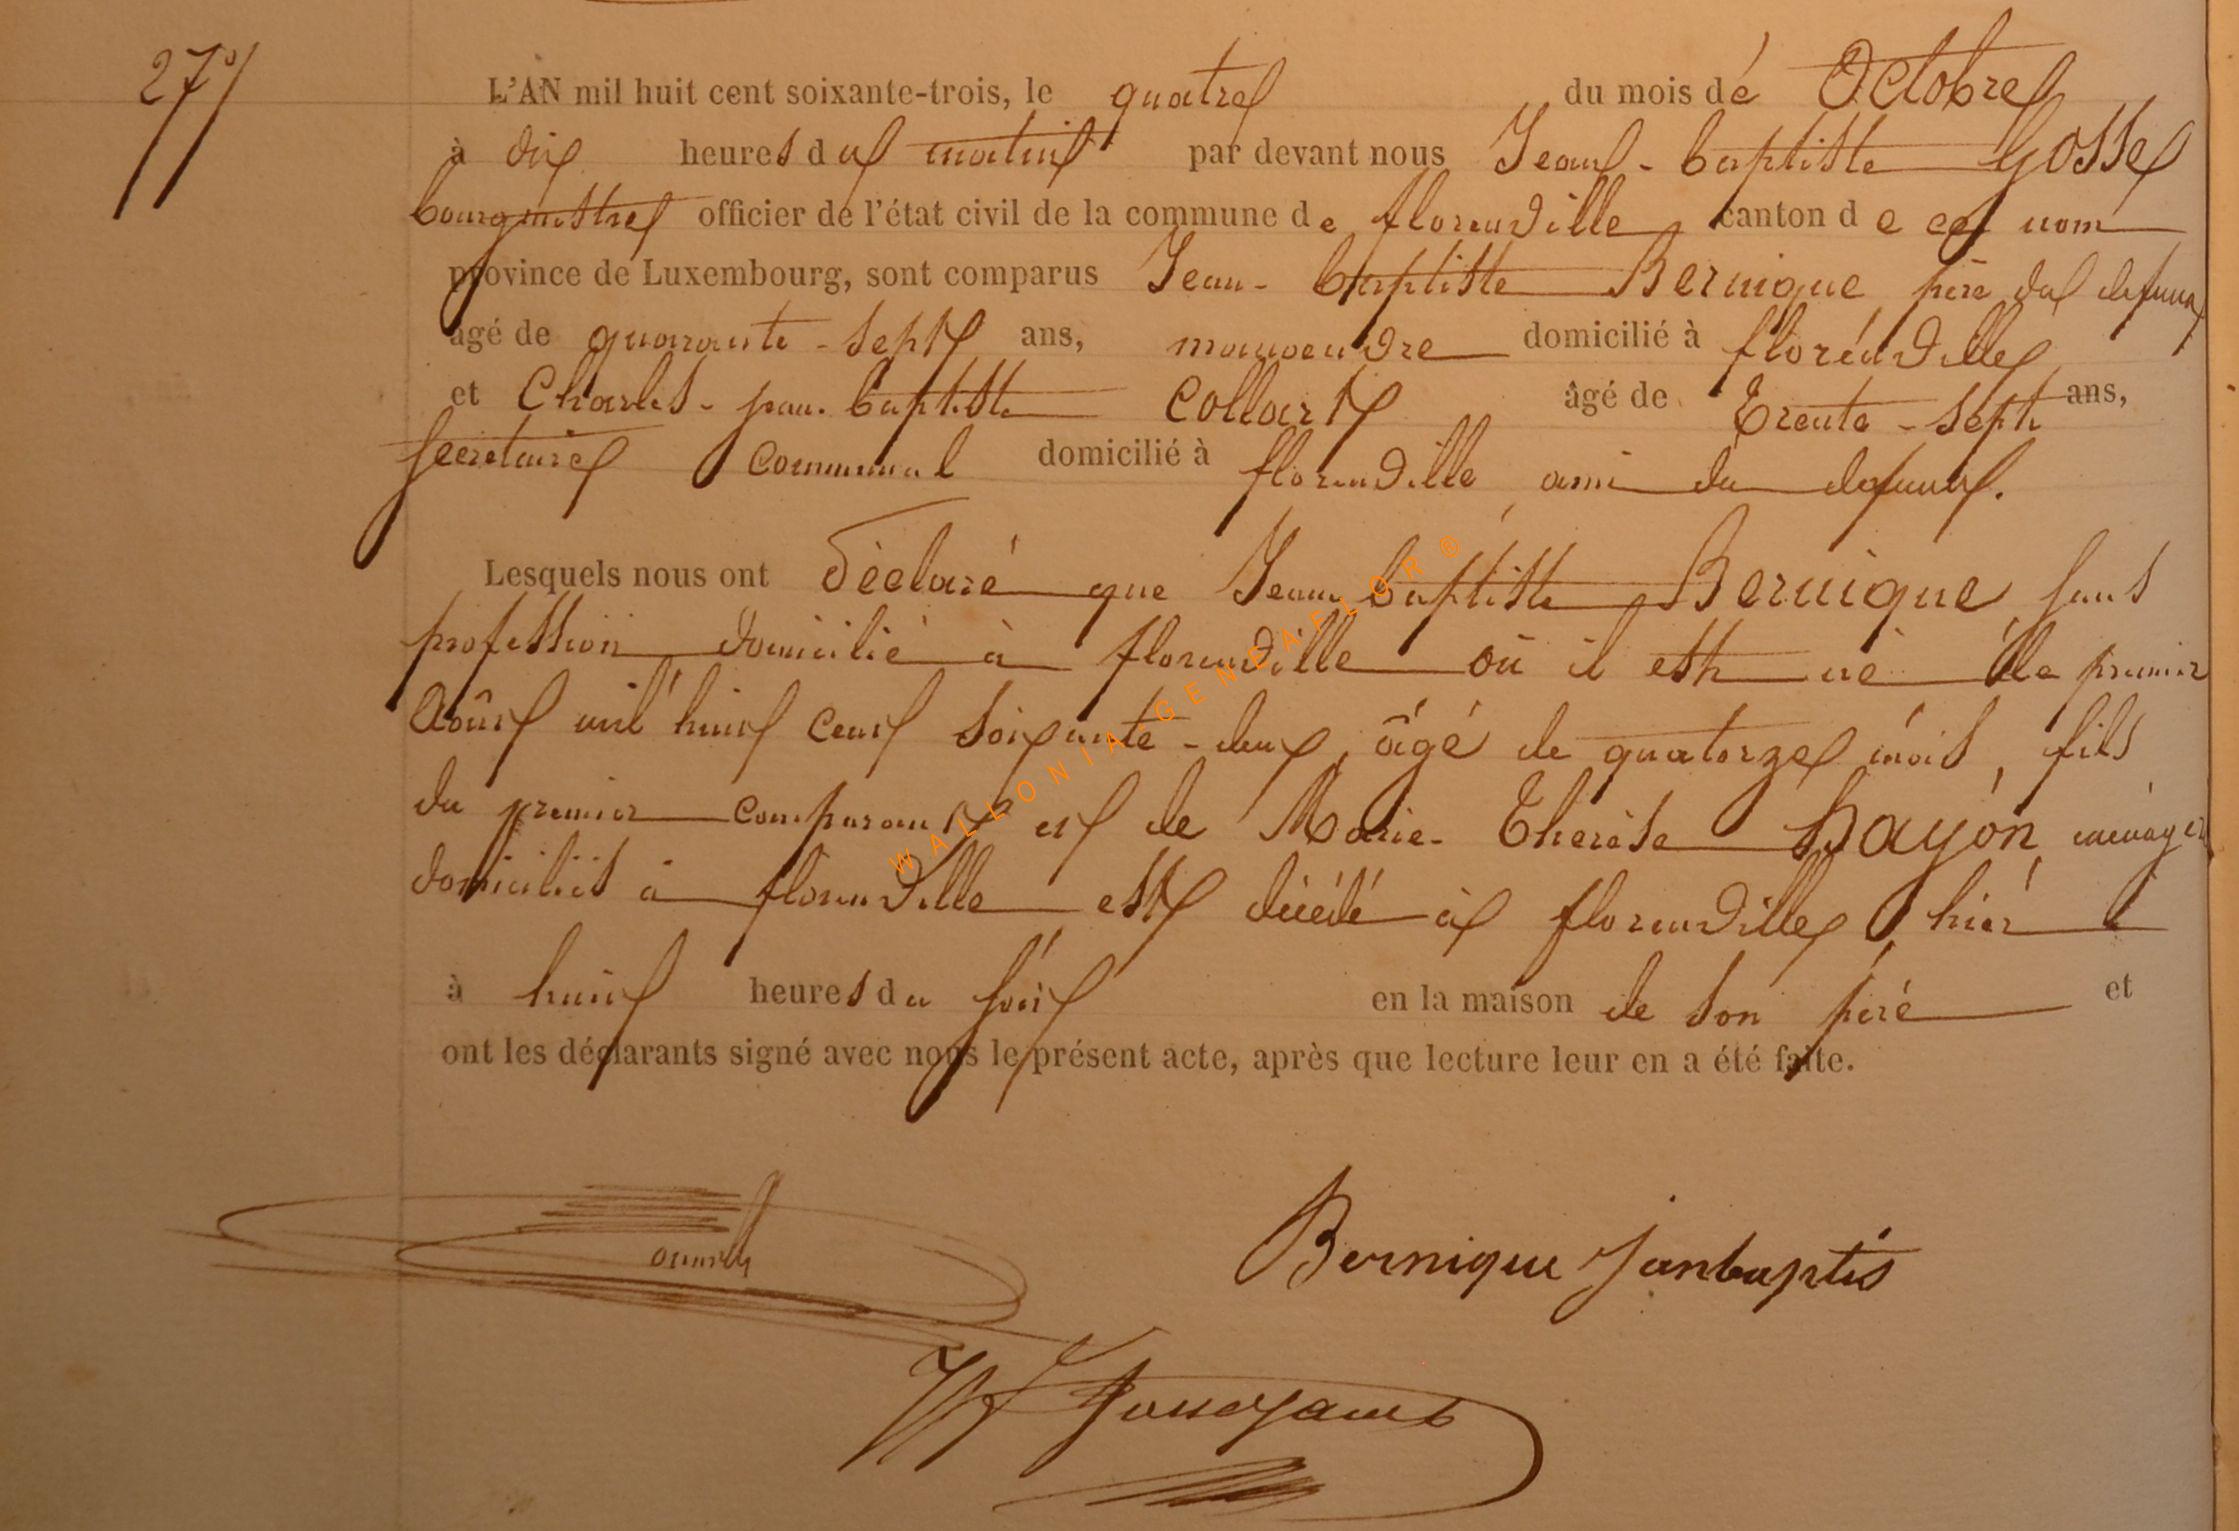 27
L'AN mil huit cent soixante-trois, le quatre du mois de Octobre
à dix heures du matin par devant nous Jean-baptiste Gosse
bourgmestre officier de l'état civil de la commune de florenville canton de ce nom
province de Luxembourg, sont comparus Jean-baptiste Bernique père du défunt
âgé de quarante-sept ans, manoeuvre domicilié à florenville
et Charles-jean-baptiste Collart âgé de trente-sept ans,
secrétaire communal domicilié à florenville ami du défunt.
Lesquels nous ont déclaré que Jean baptiste Bernique, sans
profession domicilié à florenville où il est né le premier
Août mil huit cent soixante-deux, âgé de quatorze mois, fils
du premier comparant et de Marie-Thérèse hayon, ménagère
domiciliés à florenville est décédé à florenville, hier
à huit heures du soir en la maison de son père et
ont les déclarants signé avec nous le présent acte, après que lecture leur en a été faite.
WALLONIA-GENBAFLOR ®
Bernique Janbaptis